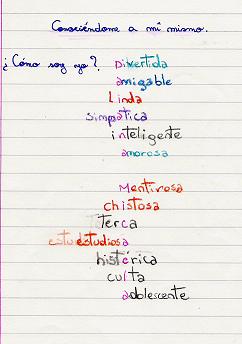 Conociéndome a mí mismo.
¿Cómo soy yo? Divertida
amigable
Linda
simpática
inteligente
amorosa
Mentirosa
chistosa
Terca
estudiosa
histérica
culta
adolescente